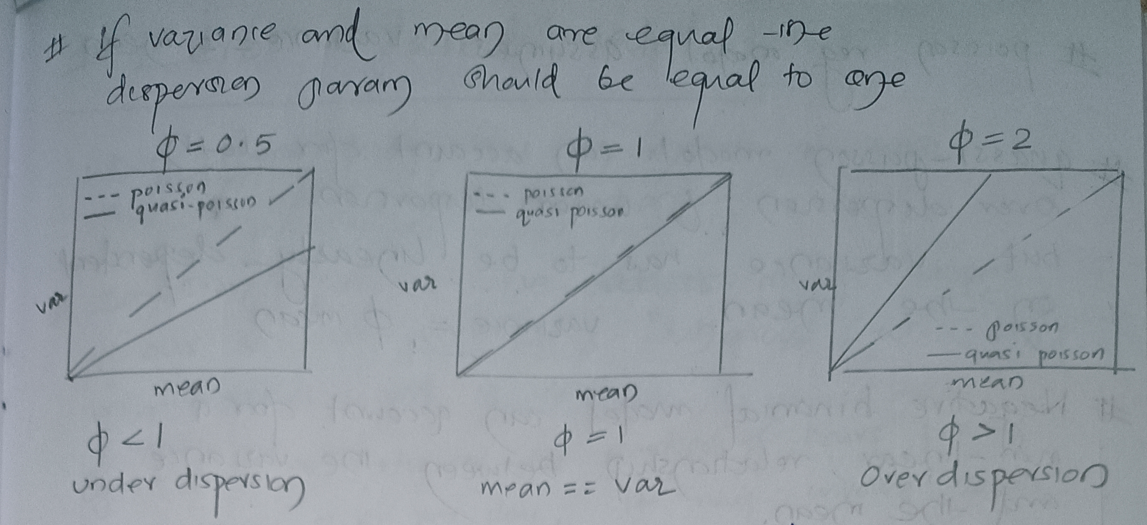 # If variance and mean are equal the
dispersion param should be equal to one
ϕ = 0.5
--- poisson
— quasi-poisson
var
mean
ϕ < 1
under dispersion
ϕ = 1
--- poisson
— quasi poisson
var
mean
ϕ = 1
mean == var
ϕ = 2
var
--- poisson
— quasi poisson
mean
ϕ > 1
over dispersion